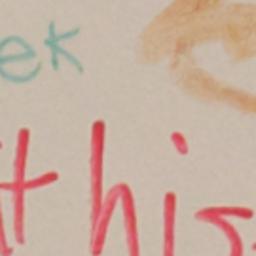 ek
this